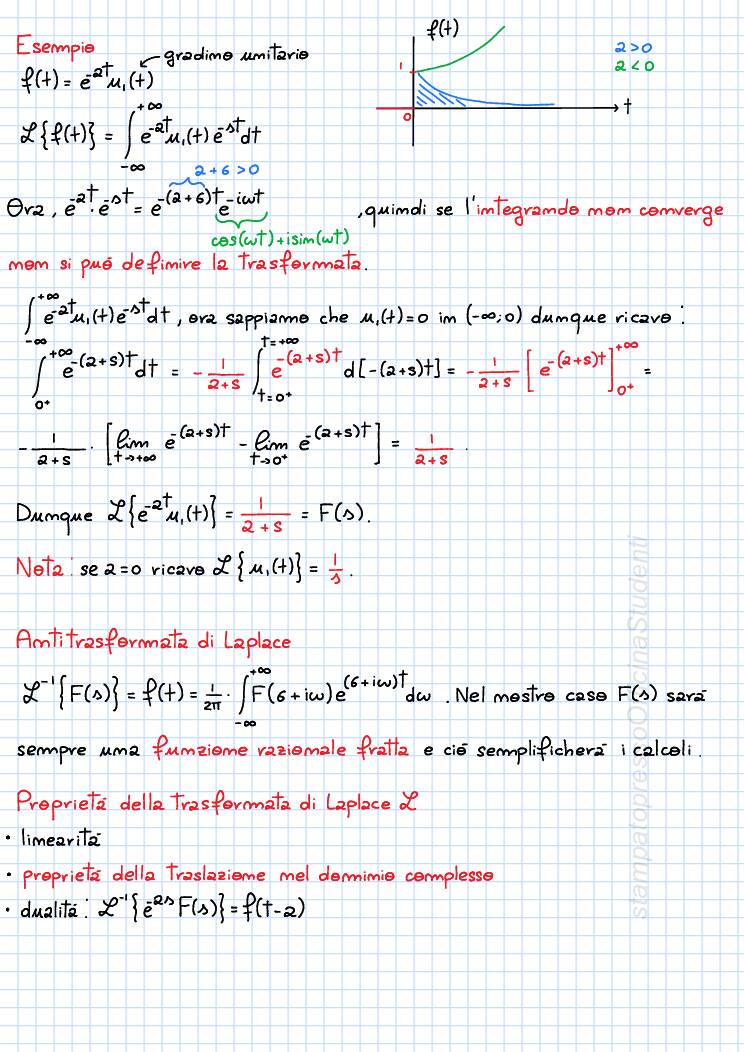 f(t)
Esempio
gradino unitario
a>0
a<0
f(t) = e^{-at}u₁(t)
1
0
t
ℒ{f(t)} = ∫_{-∞}^{+∞} e^{-at}u₁(t) e^{-st}dt
a+σ>0
Ora, e^{-at}·e^{-st} = e^{-(a+σ)t}e^{-iωt} , quindi se l'integrando non converge
cos(ωt)+isin(ωt)
non si puó definire la trasformata.
∫_{-∞}^{+∞} e^{-at}u₁(t)e^{-st}dt, ora sappiamo che u₁(t)=0 in (-∞;0) dunque ricavo:
∫_{0⁺}^{+∞} e^{-(a+s)t}dt = -1/(a+s) ∫_{t=0⁺}^{t=+∞} e^{-(a+s)t} d[-(a+s)t] = -1/(a+s) [e^{-(a+s)t}]_{0⁺}^{+∞} =
-1/(a+s) · [lim_{t→+∞} e^{-(a+s)t} - lim_{t→0⁺} e^{-(a+s)t}] = 1/(a+s) .
Dunque ℒ{e^{-at}u₁(t)} = 1/(a+s) = F(s).
Nota: se a=0 ricavo ℒ{u₁(t)} = 1/s.
Antitrasformata di Laplace
ℒ⁻¹{F(s)} = f(t) = 1/2π · ∫_{-∞}^{+∞} F(σ+iω)e^{(σ+iω)t}dω . Nel nostro caso F(s) sará
sempre una funzione razionale fratta e ció semplificherá i calcoli.
Proprietá della trasformata di Laplace ℒ
• linearitá
• proprietá della traslazione nel dominio complesso
• dualitá: ℒ⁻¹{e^{-as}F(s)} = f(t-a)
stampatopressoOfficinaStudenti